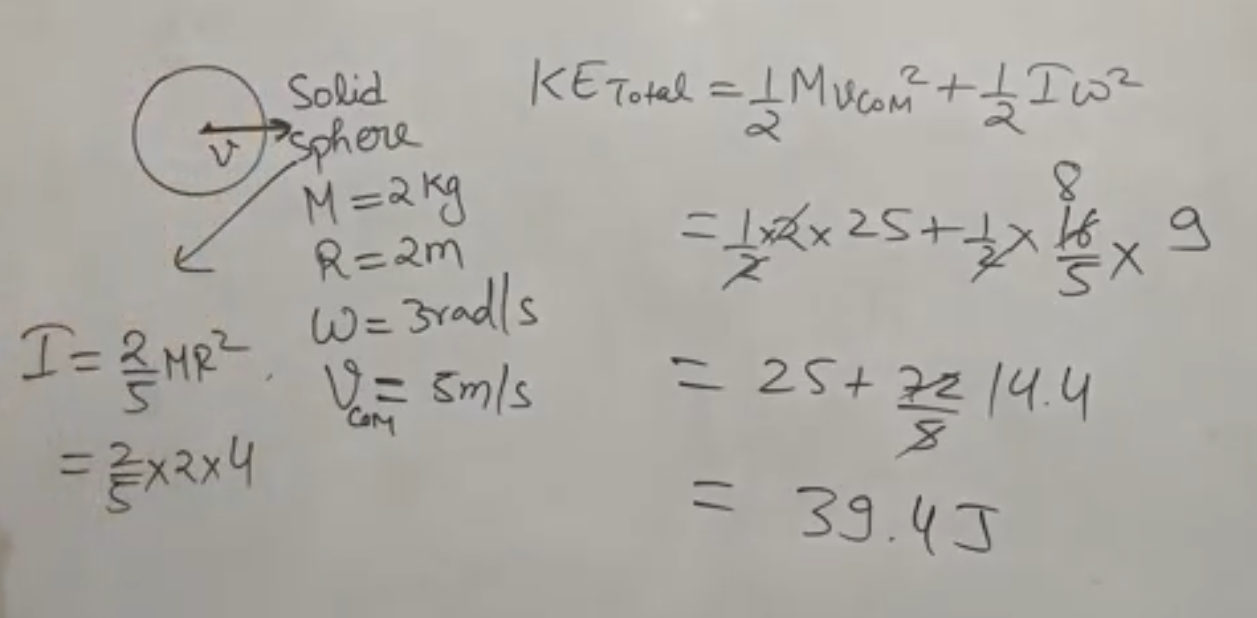 Solid
Sphere
V
M = 2 Kg
R = 2m
ω = 3rad/s
V_COM = 5m/s
I = 2/5 MR².
= 2/5 × 2 × 4
KE Total = 1/2 M v_COM² + 1/2 I ω²
= 1/2 × 2 × 25 + 1/2 × 16/5 × 9
8
= 25 + 72/5 14.4
= 39.4 J